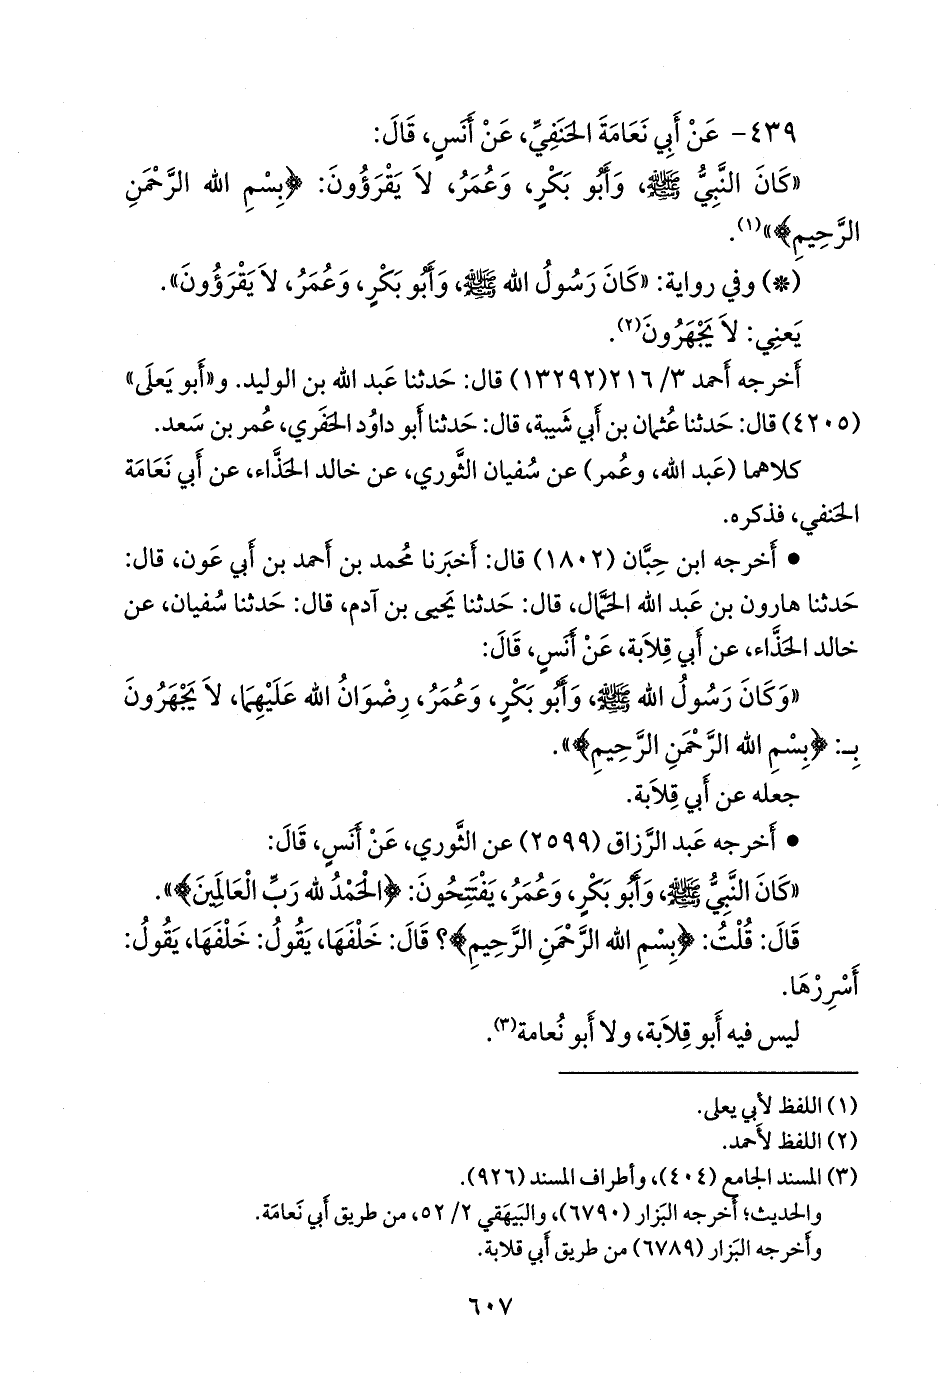 ٤٣٩- عَنْ أَبِي نَعَامَةَ الحَنَفِيِّ، عَنْ أَنَسٍ، قَالَ:
«كَانَ النَّبِيُّ ﷺ، وَأَبُو بَكْرٍ، وَعُمَرُ، لاَ يَقْرَؤُونَ: ﴿بِسْمِ الله الرَّحْمَنِ
الرَّحِيمِ﴾»(١).
(*) وفي رواية: «كَانَ رَسُولُ الله ﷺ، وَأَبُو بَكْرٍ، وَعُمَرُ، لاَ يَقْرَؤُونَ».
يَعنِي: لاَ يَجْهَرُونَ(٢).
أَخرجه أَحمد ٣/ ٢١٦(١٣٢٩٢) قال: حَدثنا عَبد الله بن الوليد. و«أَبو يَعلَى»
(٤٢٠٥) قال: حَدثنا عُثمان بن أَبي شَيبة، قال: حَدثنا أَبو داوُد الحَفَري، عُمر بن سَعد.
كلاهما (عَبد الله، وعُمر) عن سُفيان الثَّوري، عن خالد الحَذَّاء، عن أَبي نَعَامَة
الحَنفي، فذكره.
• أَخرجه ابن حِبَّان (١٨٠٢) قال: أَخبَرنا مُحمد بن أَحمد بن أَبي عَون، قال:
حَدثنا هارون بن عَبد الله الحَمَّال، قال: حَدثنا يَحيى بن آدم، قال: حَدثنا سُفيان، عن
خالد الحَذَّاء، عن أَبي قِلاَبة، عَنْ أَنَسٍ، قَالَ:
«وَكَانَ رَسُولُ الله ﷺ، وَأَبُو بَكْرٍ، وَعُمَرُ، رِضْوَانُ الله عَلَيْهِمَا، لاَ يَجْهَرُونَ
بِـ: ﴿بِسْمِ الله الرَّحْمَنِ الرَّحِيمِ﴾».
جعله عن أَبي قِلاَبة.
• أَخرجه عَبد الرَّزاق (٢٥٩٩) عن الثَّوري، عَنْ أَنَسٍ، قَالَ:
«كَانَ النَّبِيُّ ﷺ، وَأَبُو بَكْرٍ، وَعُمَرُ، يَفْتَتِحُونَ: ﴿الحَمْدُ لله رَبِّ الْعَالَمِينَ﴾».
قَالَ: قُلْتُ: ﴿بِسْمِ الله الرَّحْمَنِ الرَّحِيمِ﴾؟ قَالَ: خَلْفَهَا، يَقُولُ: خَلْفَهَا، يَقُولُ:
أَسْرِرْهَا.
ليس فيه أَبو قِلاَبة، ولا أَبو نُعامة(٣).
(١) اللفظ لأَبي يعلى.
(٢) اللفظ لأَحمد.
(٣) المسند الجامع (٤٠٤)، وأطراف المسند (٩٢٦).
والحديث؛ أَخرجه البَزار (٦٧٩٠)، والبَيهَقي ٢/ ٥٢، من طريق أَبي نَعامَة.
وأَخرجه البَزار (٦٧٨٩) من طريق أَبي قلابة.
٦٠٧